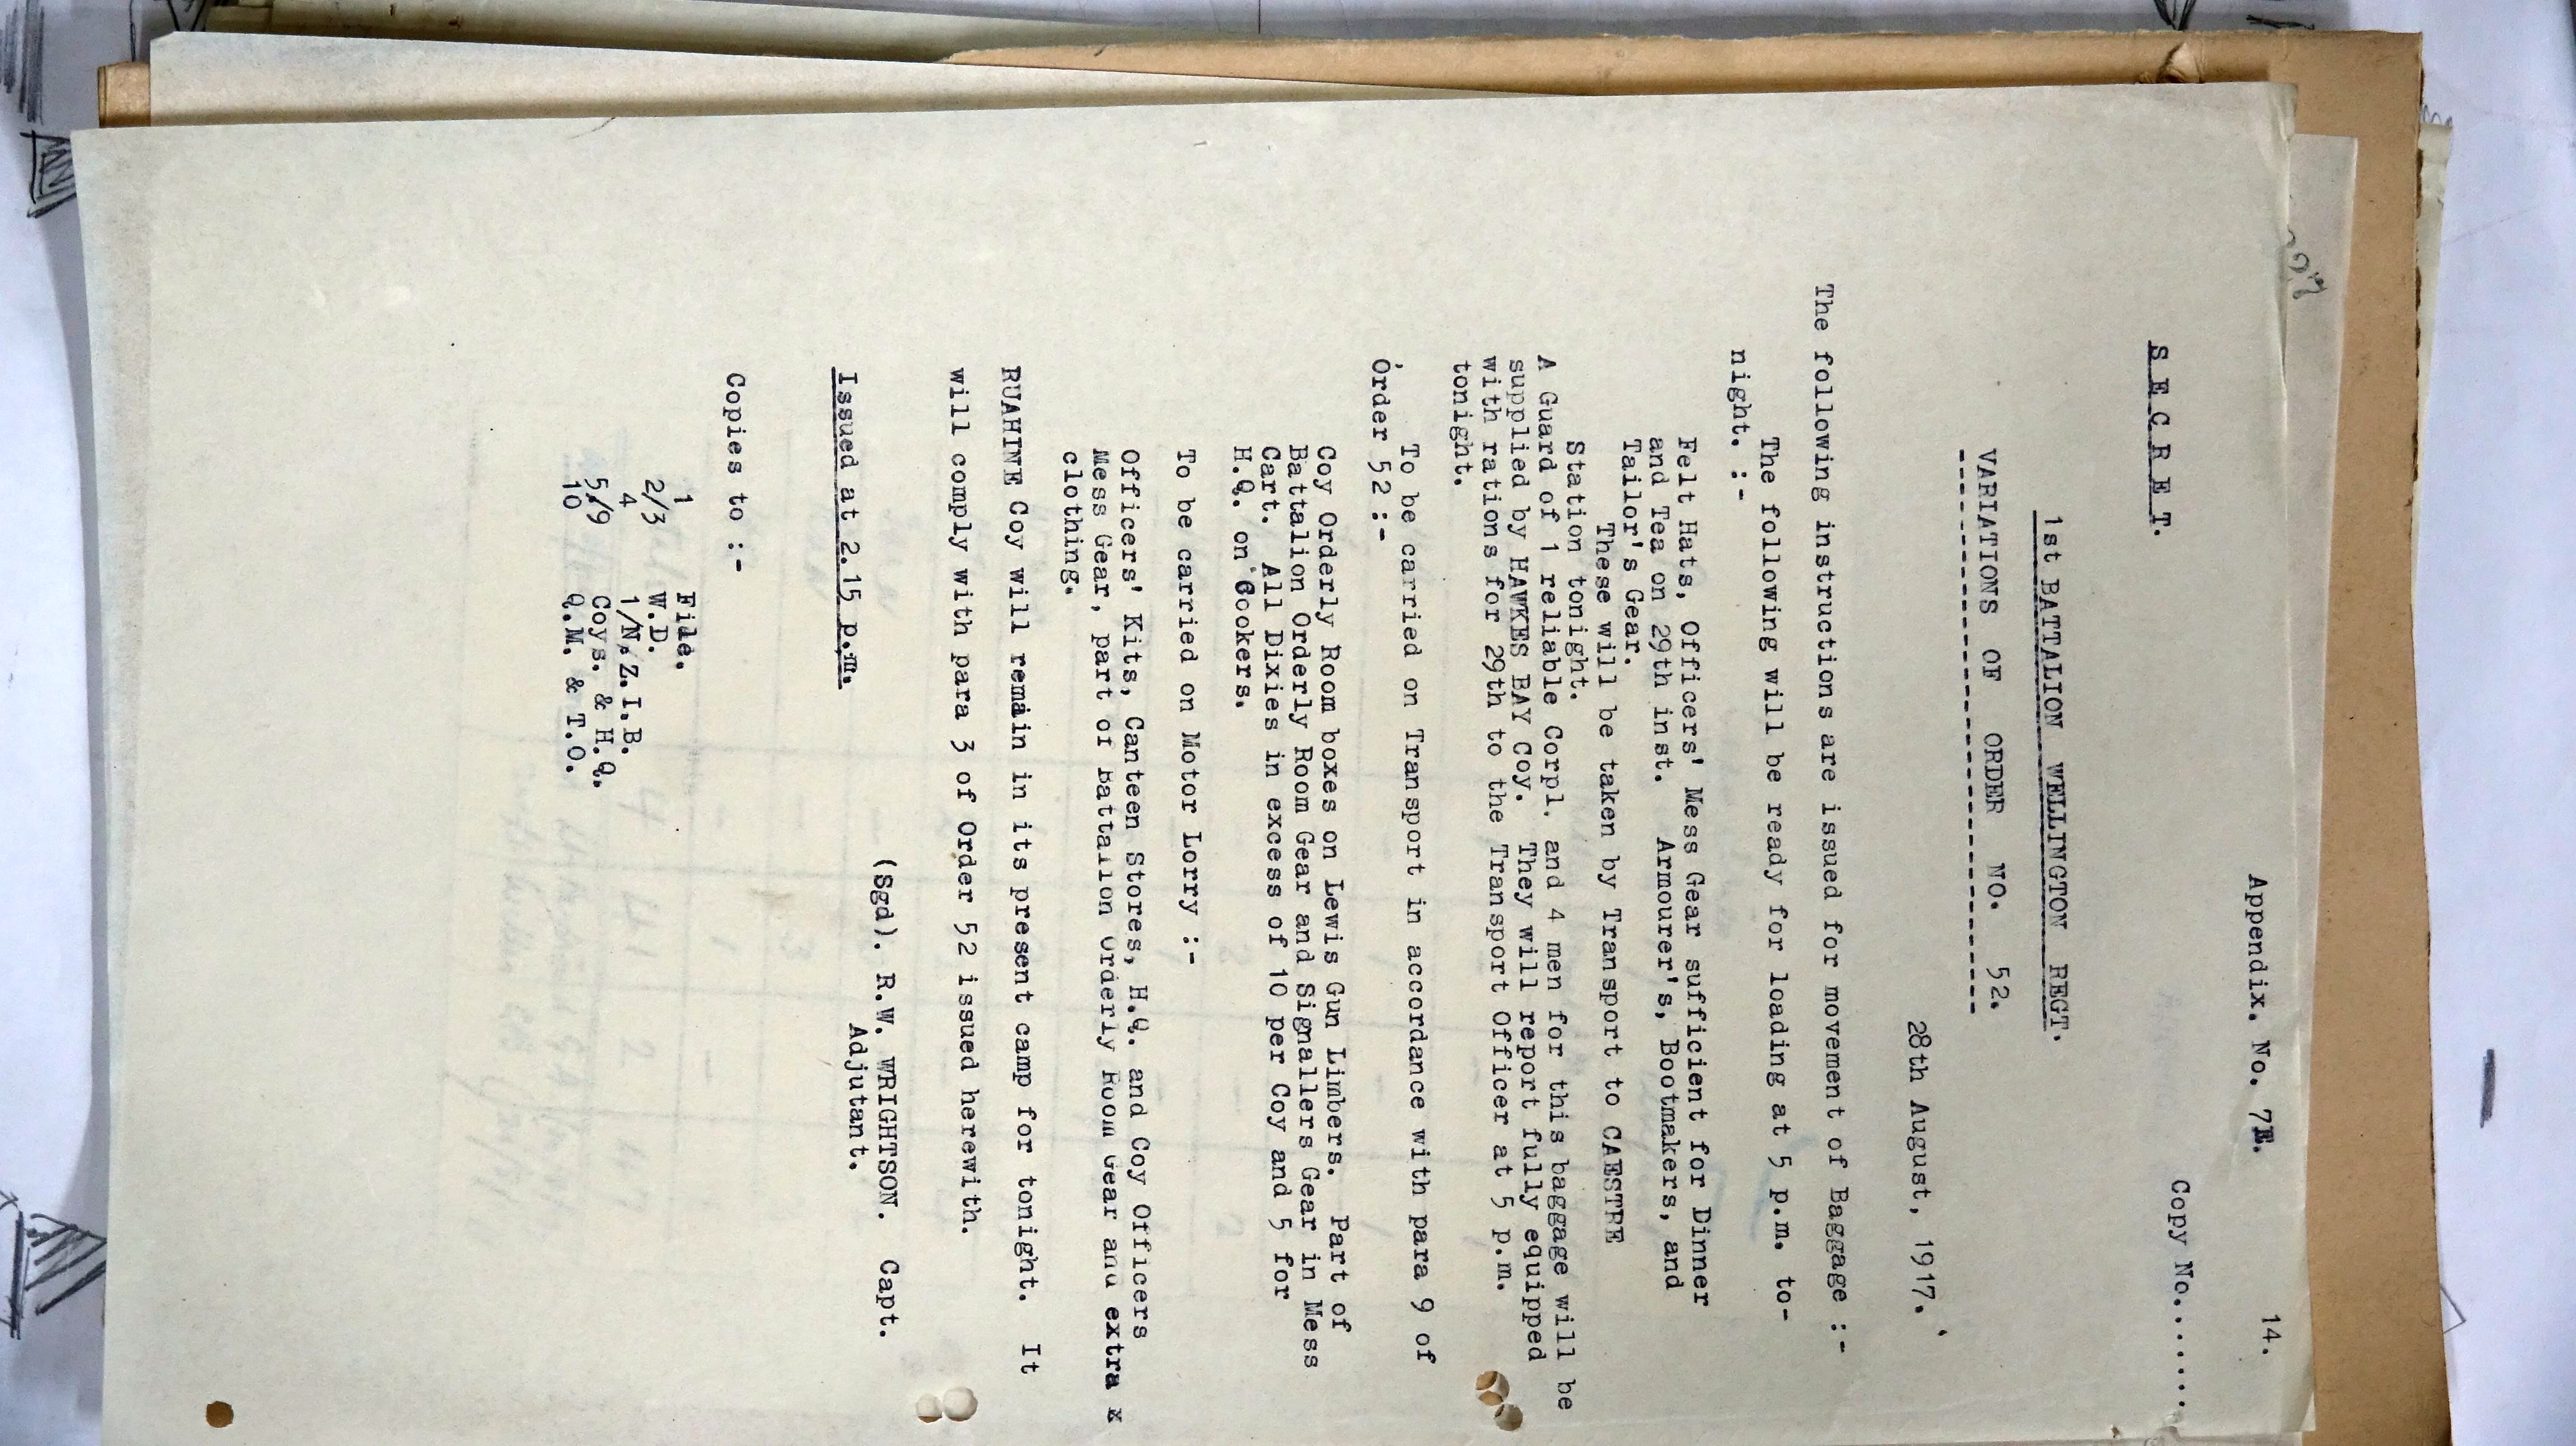 14.
Appendix. No. 7E.
Copy No.......
S E C R E T.
1st BATTALION WELLINGTON REGT.
VARIATIONS OF ORDER NO. 52.
28th August, 1917.
The following instructions are issued for movement of Baggage :-
The following will be ready for loading at 5 p.m. to-
night. :-
Felt Hats, Officers' Mess Gear sufficient for Dinner
and Tea on 29th inst. Armourer's, Bootmakers, and
Tailor's Gear.
These will be taken by Transport to CAESTRE
Station tonight.
A Guard of 1 reliable Corpl. and 4 men for this baggage will be
supplied by HAWKES BAY Coy. They will report fully equipped
with rations for 29th to the Transport Officer at 5 p.m.
tonight.
To be carried on Transport in accordance with para 9 of
Order 52 :-
Coy Orderly Room boxes on Lewis Gun Limbers. Part of
Battalion Orderly Room Gear and Signallers Gear in Mess
Cart. All Dixies in excess of 10 per Coy and 5 for
H.Q. on Cookers.
To be carried on Motor Lorry :-
Officers' Kits, Canteen Stores, H.Q. and Coy Officers
Mess Gear, part of Battalion Orderly Room Gear and extra x
clothing.
RUAHINE Coy will remain in its present camp for tonight. It
will comply with para 3 of Order 52 issued herewith.
(Sgd). R.W. WRIGHTSON. Capt.
Adjutant.
Issued at 2.15 p.m.
Copies to :-
1 File.
2/3 W.D.
4 1/N.Z.I.B.
5/9 Coys. & H.Q.
10 Q.M. & T.O.